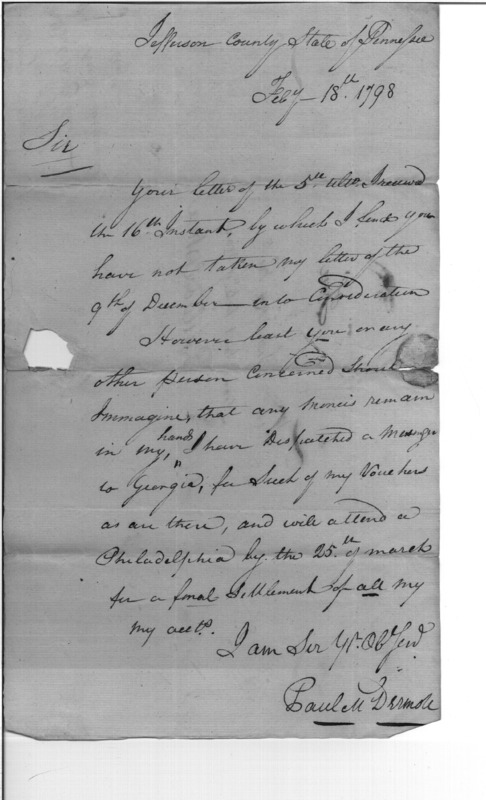 Jefferson County State of Tennessee
Feby 18th. 1798
Sir
Your letter of the 5th. ulto. I received
the 16th Instant, by which I find you
have not taken my letter of the
9th of December into Consideration
However least you or any
other person Concerned Should
Immagine, that any monies remain
in my hands, I have Dispatched a Messenger
to Georgia, for Such of my Vouchers
as are there, and will attend a
Philadelphia by the 25th. of march
for a final Settlement of all my
my accts.
I am Sir Yr. Ob Serv
Paul McDermott